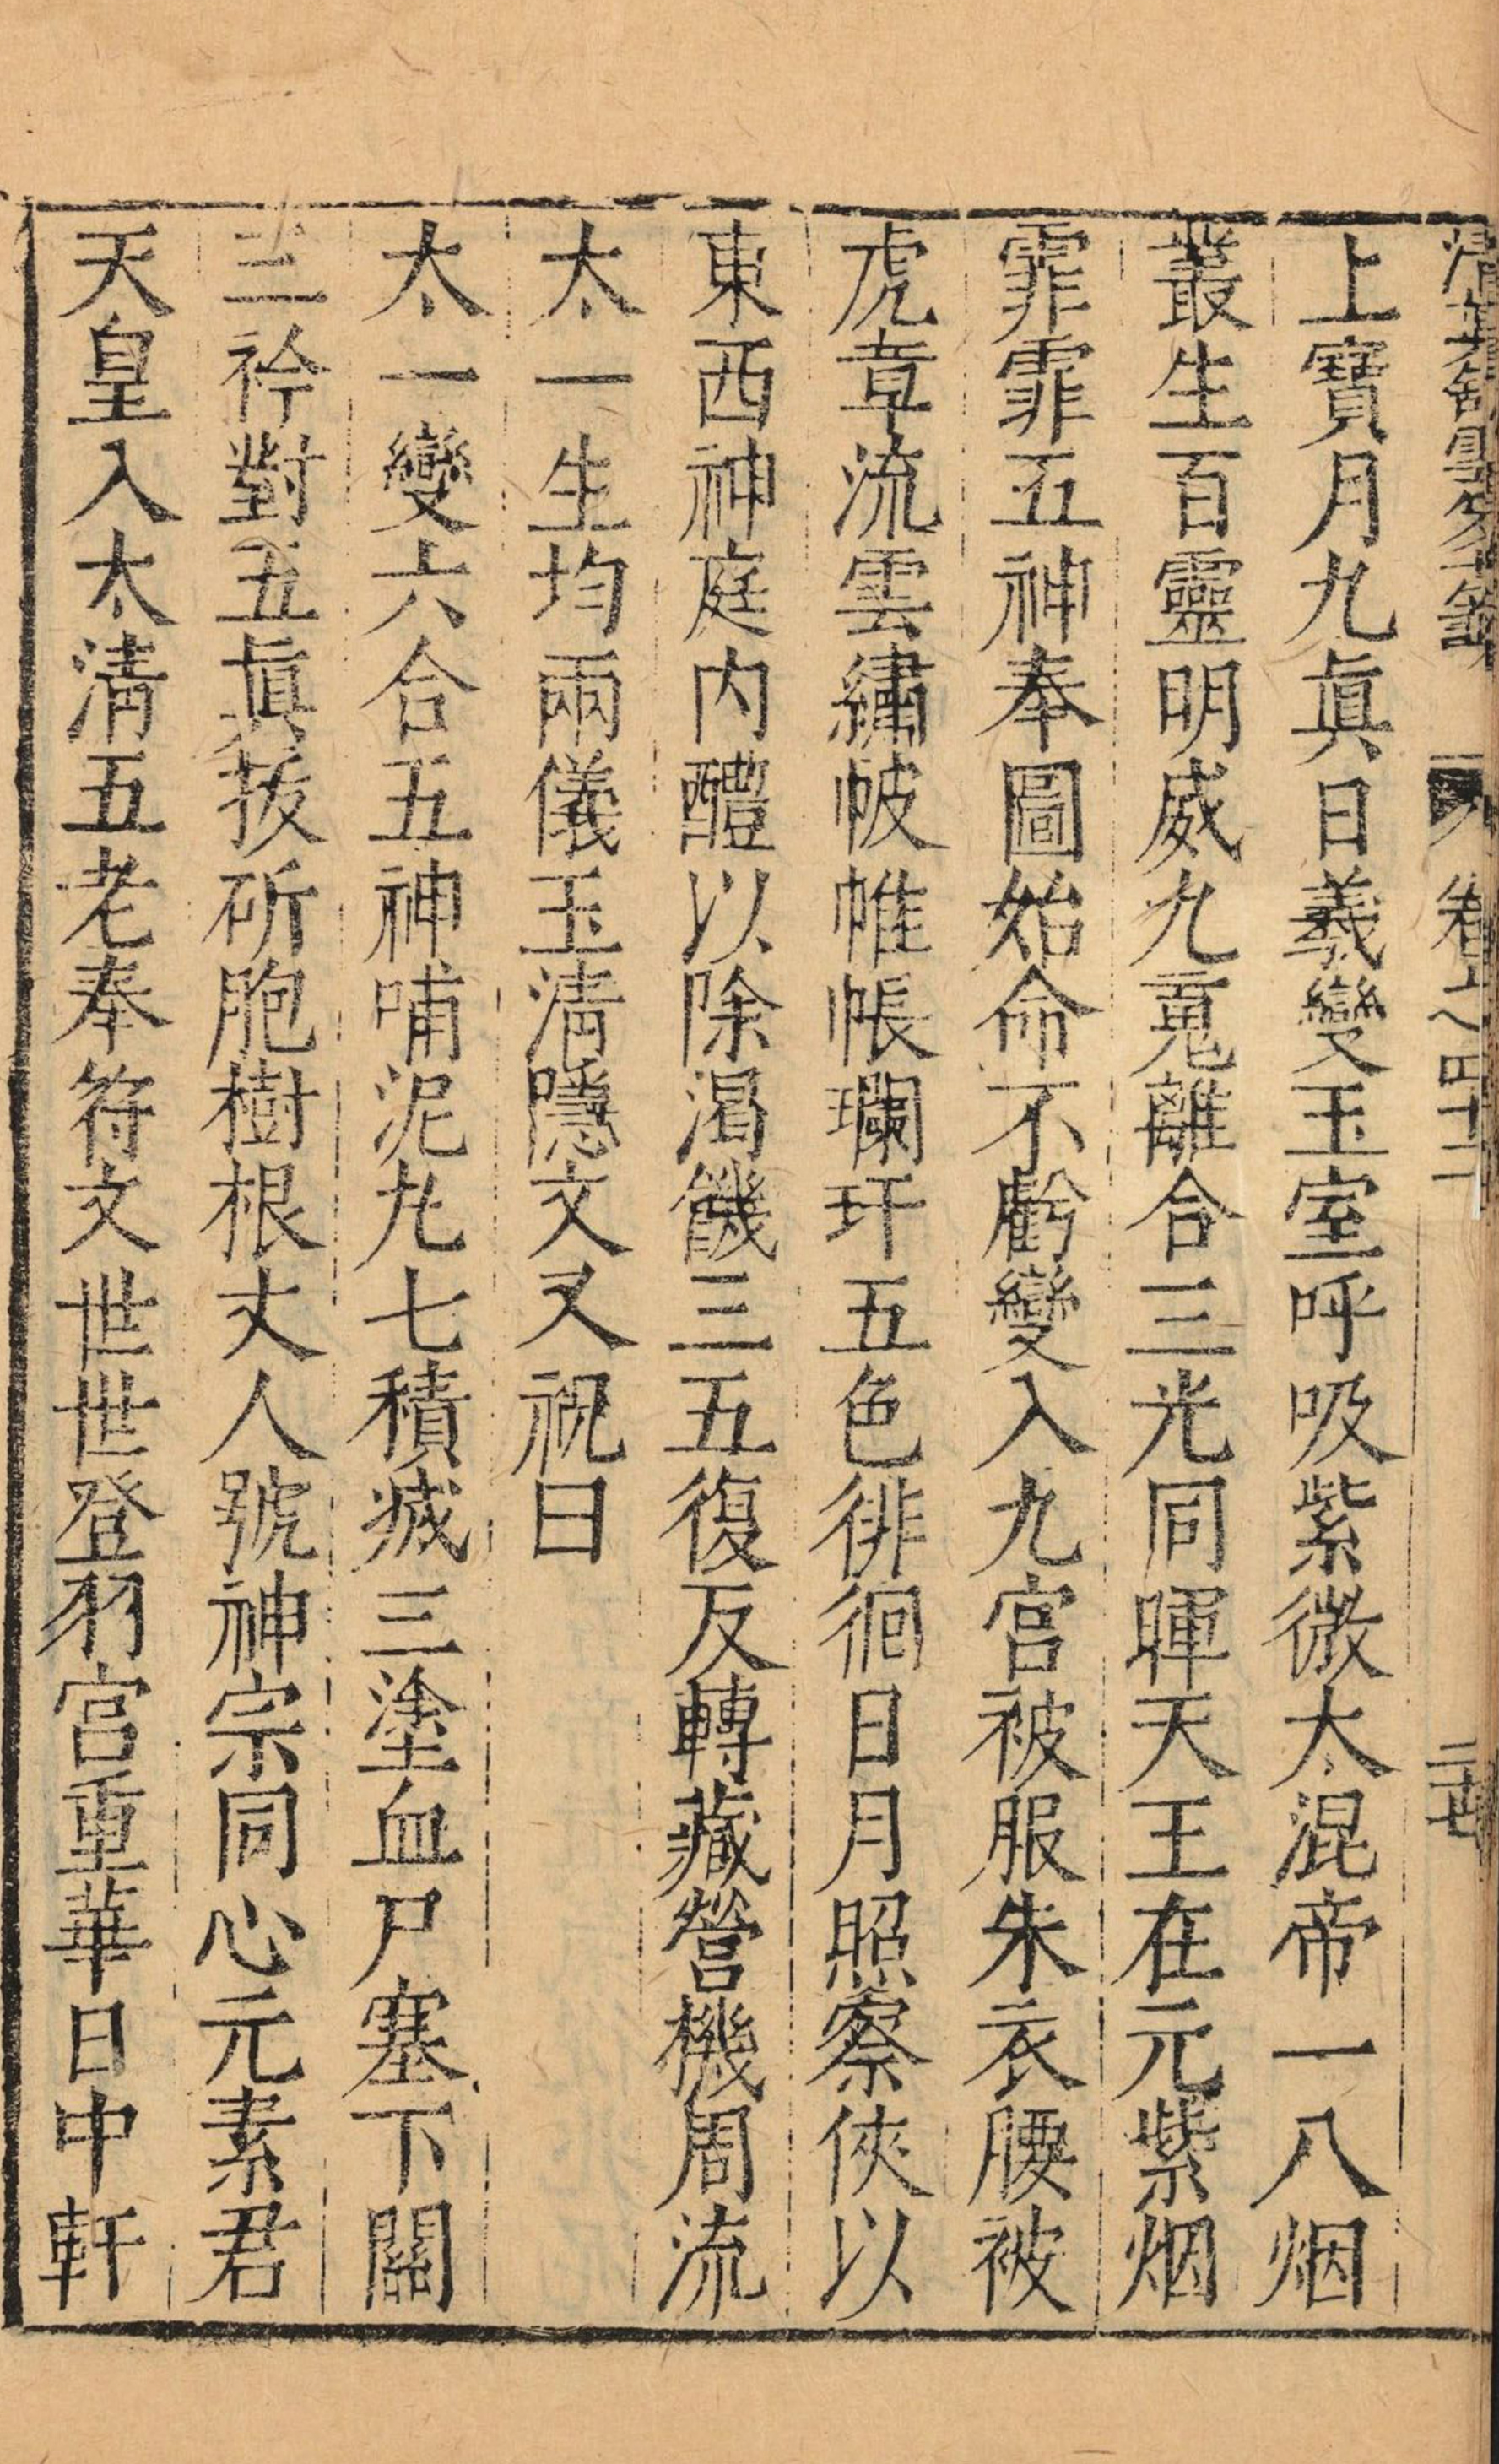 清真館雲笈七籤　卷之四十二　二十七
上寶月九眞日羲變玉室呼吸紫微太混帝一八烟
叢生百靈明威九䰟離合三光同暉天王在元紫烟
霏霏五神奉圖始命不虧變入九宮被服朱衣腰被
虎章流雲繡帔帷帳瓓玕五色徘徊日月照察俠以
東西神庭内醴以除渴饑三五復反轉藏營機周流
太一生均兩儀玉清隱文又祝曰
太一變六合五神哺泥丸七積㓕三塗血尸塞下關
三衿對五眞拔斫胞樹根丈人號神宗同心元素君
天皇入太清五老奉符文世世登羽宮重華日中軒